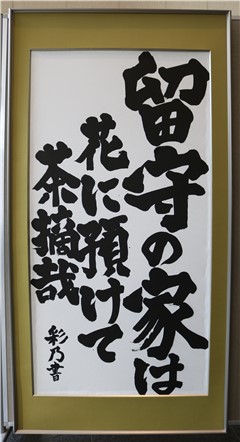 留守の家は
花に預けて
茶摘哉
彩乃書